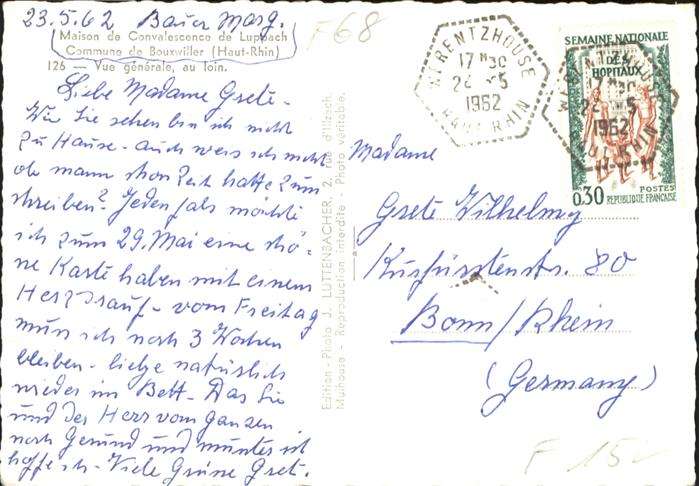 23.5.62 Bauer Marg.
Maison de Convalescence de Luppach
Commune de Bouxwiller (Haut-Rhin)
126 — Vue générale, au loin.
Liebe Madame Grete -
Wie Sie sehen bin ich nicht
zu Hause - auch weis ich nicht
ob mann schon Zeit hatte zum
schreiben? Jedenfals möchte
ich zum 29. Mai eine schö-
ne Karte haben mit einem
Herz drauf - vom Freitag
mus ich noch 3 Wochen
bleiben - liege natürlich
wieder im Bett - Das Sie
und der Herr vom Ganzen
noch Gesund und munter ist
hoffe ich - Viele Grüse Gret.
Edition - Photo J. LUTTENBACHER, 2, rue d'Illzach,
Mulhouse - Reproduction interdite - Photo véritable.
F68
WERENTZHOUSE
17 H30
24 -5
1962
HAUT RHIN
SEMAINE NATIONALE
DES
HOPITAUX
WERENTZHOUSE
17 H30
24 -5
1962
HAUT RHIN
0,30
POSTES
REPUBLIQUE FRANÇAISE
Madame
Grete Wilhelmy
Kurfürstenstr. 80
Bonn/Rhein
(Germany)
F 15